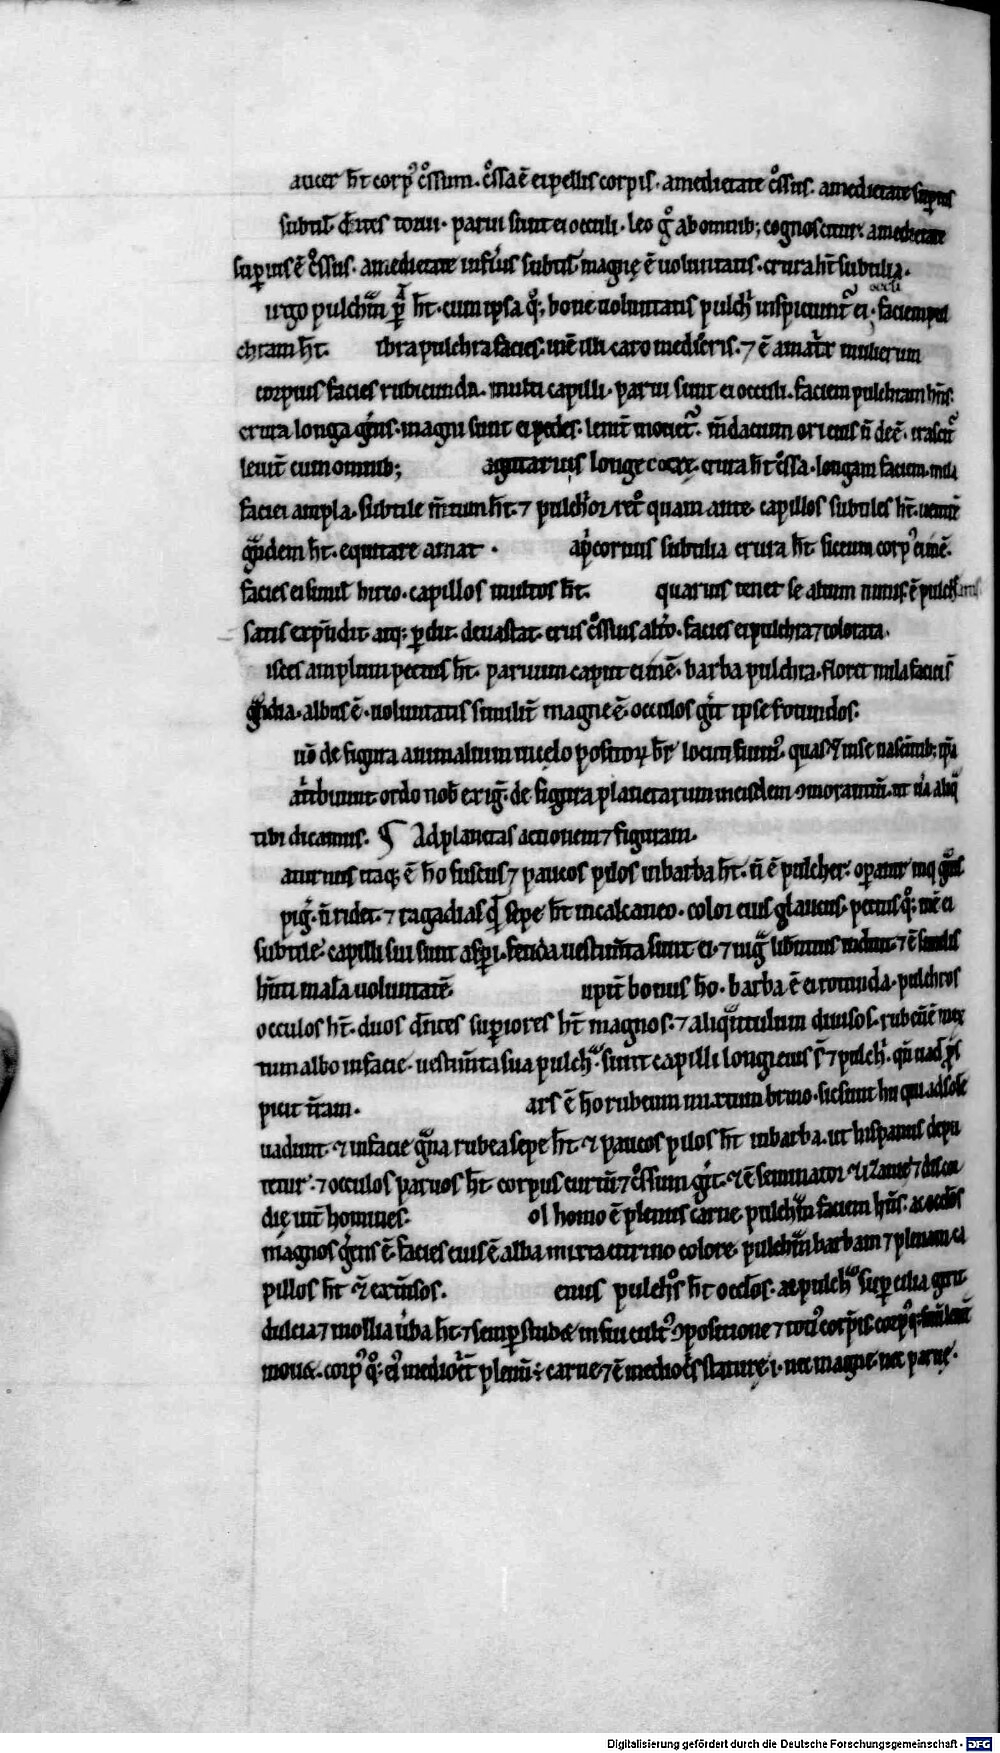 ancer h̅t corp᷒ g͛ssum. g͛ssa ē ei pellis corpis. a medietate g͛ssus. a medietate superius
subtil̅. d̅ntes torui. parui sunt ei occuli. leo g͛ ab omnib; cognoscitur. a medietate
superius ē g͛ssus. a medietate inferius subtil̅. magnę ē uoluntatis. crura h̅t subtilia.
irgo pulchm̅ h̅t. cum ipsa q͛; bone uoluntatis pulchr̅ inspiciunt᷒ ei occli. faciem pul
chram h̅t. ibra pulchra facies. inē illi caro mediocris. ⁊ ē amator mulierum
corpius facies rubicunda. multi capilli. parui sunt ei occuli. faciem pulchram hn̅s.
crura longa gerens. magni sunt ei pedes. leuit̅ mouet᷒. m̅dacium oriens n̅ deē. irascit᷒
leuit̅ cum omnib; agittarius longe crura h̅t g͛ssa. longam faciem. mila
faciei ampla. subtile m̅tum h̅t. ⁊ pulchr̅ior ret͛ quam ante. capillos subtiles h̅t. uentrē
g̅ndem h̅t. equitare amat. apcornus subtilia crura h̅t. siccum corp᷒ ei inē.
facies ei simil̅ hirco. capillos multos h̅t. quarius tenet se altum nimis. ē pulcher
satis expn̅dit atq; p̲dit. deuastat. crus g͛ssius altero. facies ei pulchra ⁊ colorata.
isces amplum pectus h̅t. paruum caput ei inē. barba pulchra. floret mila faciei s̅
candida. albus ē. uoluntatis similit̅ magne ē. occulos gerit ipse rotundos.
uō de figura animalium in cęlo positoꝝ br̅ locuti sum᷒. quas ⁊ in se nascentib; ip̅a
attribuunt. ordo nob̅ exig̅. de figura planetarum in eisdem ꝯmorantium. ut n̅ra aliq̅
tibi dicamus. ¶ Ad planetas actionem ⁊ figuram.
aturnus itaq; ē ho̅ fuscus ⁊ paucos pilos in barba h̅t. n̅ ē pulcher. operatur inq̅
pig̅. n̅ ridet. ⁊ ragadias q̅ sepe h̅t in calcaneo. color eius glaucus. pectus q͛; inē ei
subtile. capilli sui sunt asperi. feda uestim̅ta sunt ei. ⁊ nig̅ libentius induit. ⁊ ē senilis
hn̅ti mal̅a uoluntatē. upit̅ bonus ho̅. barba ē ei rotunda. pulchros
occulos h̅t. duos d̅ntes superiores h̅t magnos. ⁊ aliquantulum diuisos. rubeum mix
tum albo in facie. uestim̅ta sua pulchra sunt. capilli longi eius s̅t ⁊ pulchr̅. qn̅ uad̅
picit t̅ram. ars ē ho̅ rubeum mixtum bruno. sic sunt hii qui ad sole
uadunt. ⁊ in facie g̅na rubea sepe h̅t. ⁊ paucos pilos h̅t in barba. ut hispanus depu
tetur. ⁊ occulos paruos h̅t. corpus curtū ⁊ g͛ssum gerit. ⁊ ē seminator ⁊ discor
dię int̅ homines. ol homo ē plenus carne. pulchm̅ faciem hn̅s. ac occlo̅s
magnos gerens ē. facies eius ē alba mixta citrino colore. pulchm̅ barbam ⁊ plenam. ca
pillos h̅t ⁊ ext̅nsos. enus pulchr̅os h̅t occlo̅s. ac pulchra supercilia gerit.
dulcia ⁊ mollia uerba h̅t. ⁊ semper studet in sui cult᷒ ꝯpositione ⁊ toti᷒ corporis. corp᷒ q; suu̅ leuit̅
mouet. corp᷒ q͛; ei᷒ mediocrit̅ plenū ÷ carne ⁊ ē mediocris staturę .i. nec magne. nec paruę.
Digitalisierung gefördert durch die Deutsche Forschungsgemeinschaft - DFG